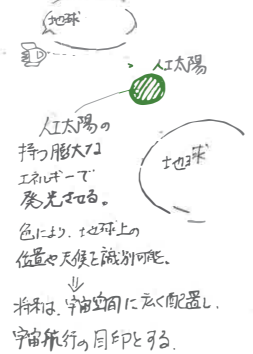 地球
人工太陽
人工太陽の
持つ膨大な
エネルギーで
発光させる。
地球
色により、地球上の
位置や天候を識別可能。
⇓
将来は、宇宙空間に広く配置し、
宇宙航行の目印とする。